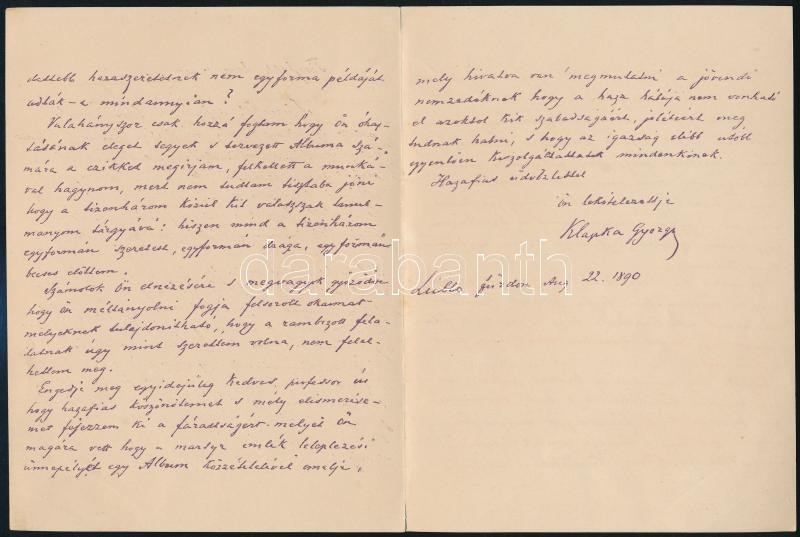 hazaszeretetnek nem egyforma példáját
adták-e mindannyian?
Valahányszor csak hozzá fogtam hogy Ön óhaj-
tásának eleget tegyek s tervezett Albuma szá-
mára a czikket megirjam, felkellett a munká-
val hagynom, mert nem tudtam tisztába jöni
hogy a tizenhárom közül kit válasszak tanul-
mányom tárgyává: hiszen mind a tizenhárom
egyformán szeretett, egyformán drága, egyformán
becses előttem.
Számolok Ön elnézésére s megvagyok győződve
hogy Ön méltányolni fogja felsorolt okaimat
melyeknek tulajdonitható, hogy a rambizott fela-
datnak úgy mint szerettem volna, nem felel-
hettem meg.
Engedje meg egyidejűleg kedves professor úr
hogy hazafias köszönetemet s mély elismerése-
met fejezzem ki a fáradtságért melyet Ön
magára vett hogy a martyr emlék leleplezési
ünnepélyét egy Album közzétételével emelje,
mely hivatva van megmutatni a jövendő
nemzedéknek hogy a haza hálája nem vonható
el azoktól kik szabadságáért, jólétéért meg
tudnak halni, s hogy az igazság előbb utóbb
egyenlően kiszolgáltattatik mindenkinek.
Hazafias üdvözlettel
Ön lekötelezettje
Klapka György
füzdon Aug 22. 1890
darabanth